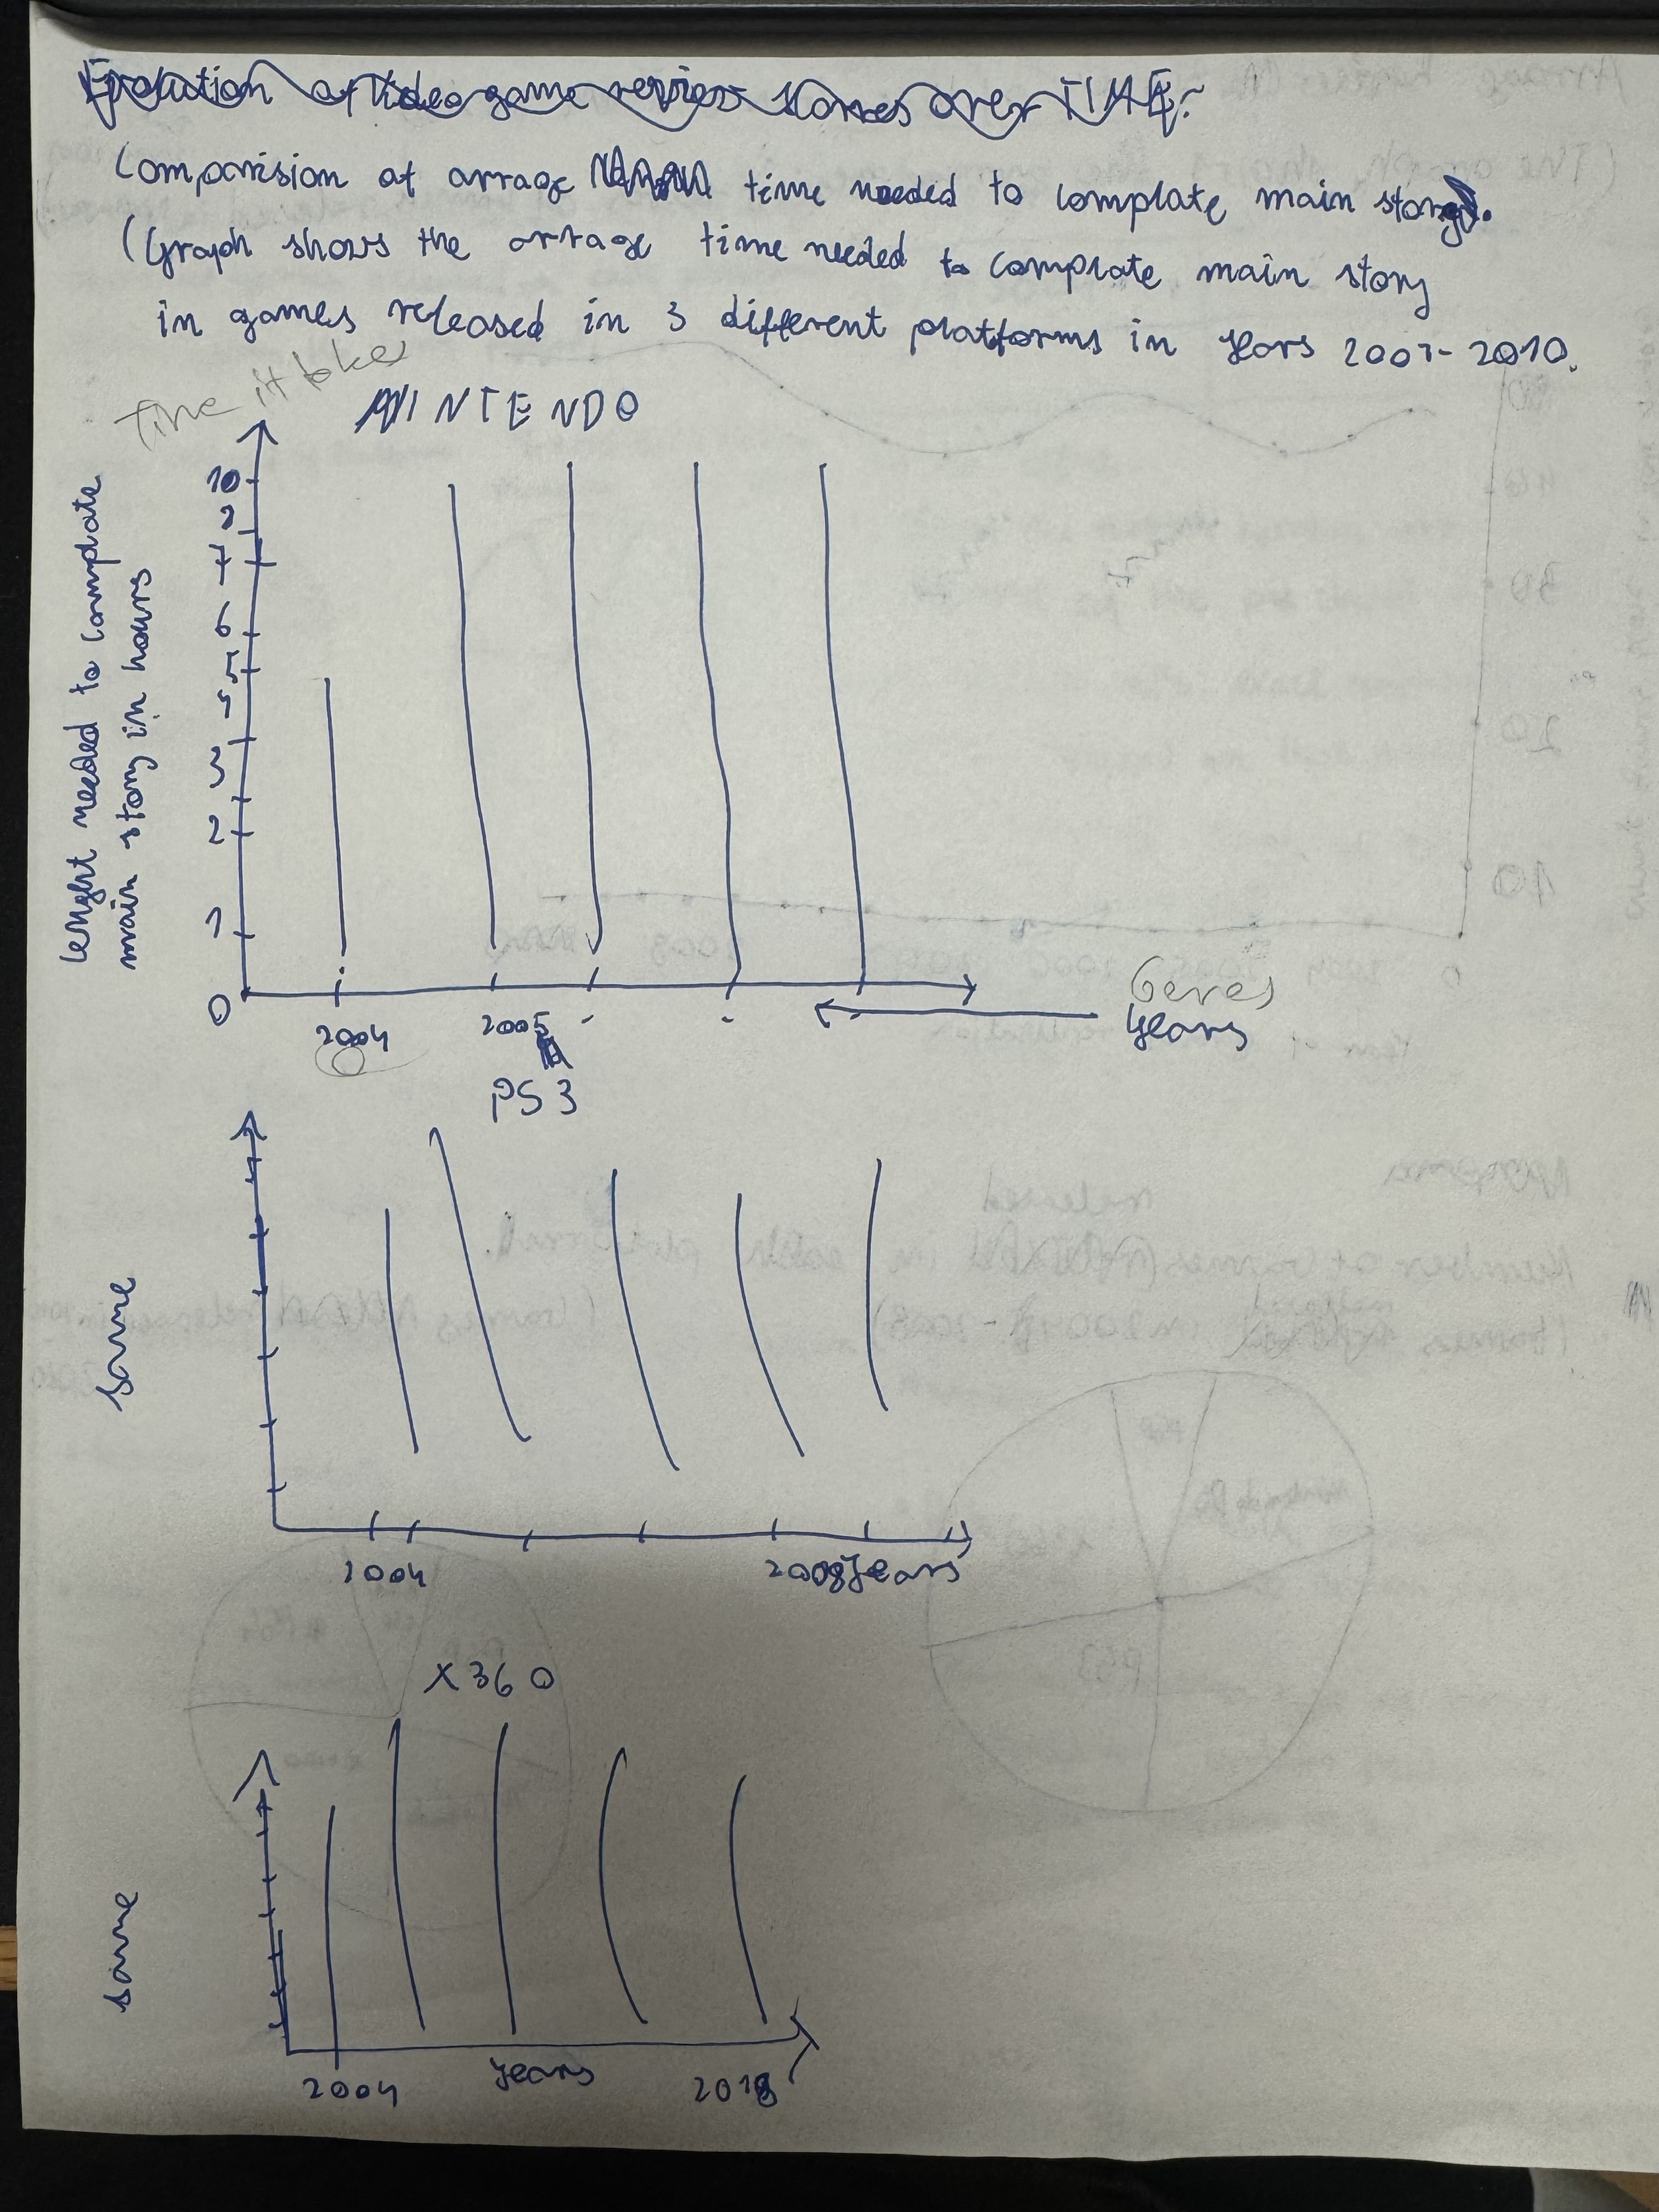 Evolution of Video game review scores over TIME.
Comparision at arrage time needed to complate main story.
(Graph shows the arrage time needed to complate main story
in games released in 3 different platforms in years 2007-2010.
Time it takes
NINTENDO
lenght needed to complate
main story in hours
10
7
6
5
3
2
1
0
2004 2005
Genres
years
PS3
same
2004 2008 years
X360
same
2004 years 2018